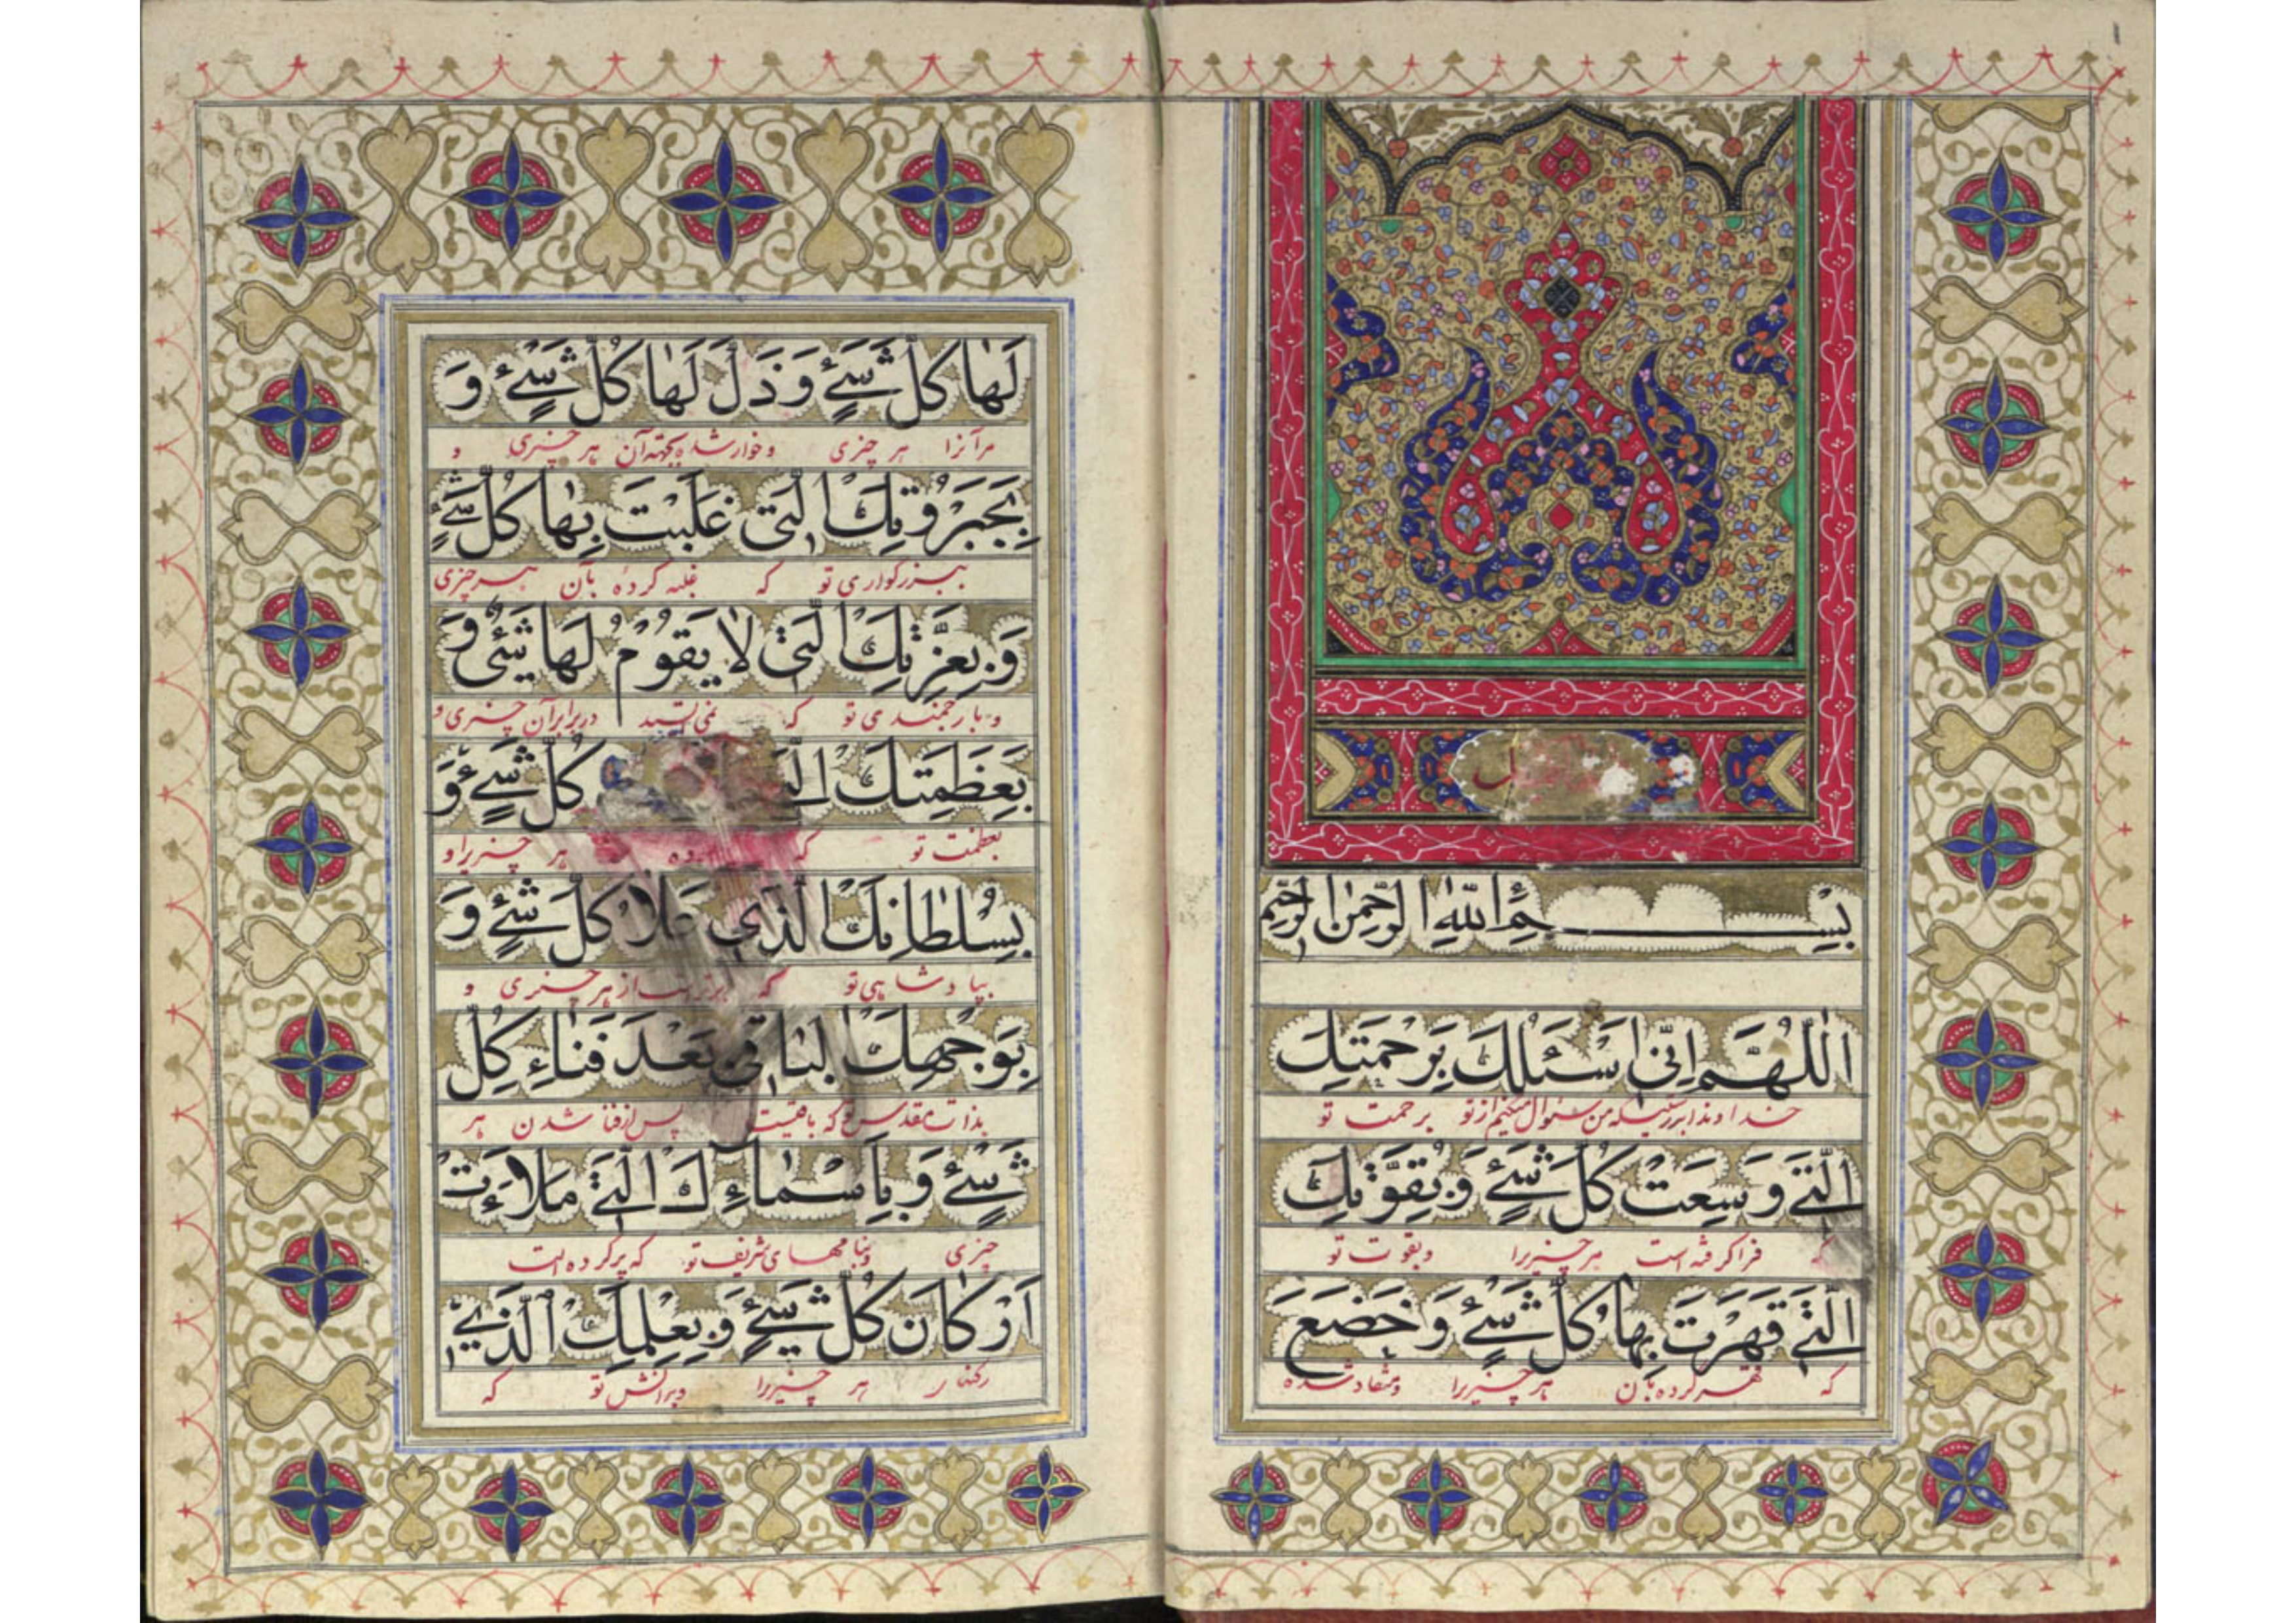 بِسْمِ اللّٰهِ الرَّحْمٰنِ الرَّحيمِ
اَللّٰهُمَّ اِنّى اَسْئَلُكَ بِرَحْمَتِكَ
خداوندا بدرستیکه من سئوال میکنم از تو برحمت تو
الَّتى وَسِعَتْ كُلَّ شَىْءٍ وَ بِقُوَّتِكَ
که فرا گرفته است هر چیزیرا و بقوت تو
الَّتى قَهَرْتَ بِهٰا كُلَّ شَىْءٍ وَ خَضَعَ
که قهر کرده بآن هر چیزیرا و منقاد شده
لَهٰا كُلُّ شَىْءٍ وَ ذَلَّ لَهٰا كُلُّ شَىْءٍ وَ
مر آنرا هر چیزی و خوار شده بجهة آن هر چیزی و
بِجَبَرُوتِكَ الَّتى غَلَبْتَ بِهٰا كُلَّ شَىْءٍ
ببزرکواری تو که غلبه کردهٔ بآن هر چیزی
وَ بِعِزَّتِكَ الَّتى لٰا يَقُومُ لَهٰا شَىْءٌ وَ
و بارجمندی تو که در برابر آن چیزی و
بِعَظَمَتِكَ كُلَّ شَىْءٍ وَ
بعظمت تو که هر چیزیرا و
بِسُلْطٰانِكَ الَّذى عَلٰا كُلَّ شَىْءٍ وَ
بپادشاهی تو که از هر چیزی و
بِوَجْهِكَ الْبٰاقى بَعْدَ فَنٰاءِ كُلِّ
بذات مقدس تو که باقیست پس از فنا شدن هر
شَىْءٍ وَ بِاَسْمٰاءِكَ الَّتى مَلَاَتْ
چیزی و بنامهای شریف تو که پر کرده است
اَرْكٰانَ كُلِّ شَىْءٍ وَ بِعِلْمِكَ الَّذى
هر چیزیرا و بدانش تو که